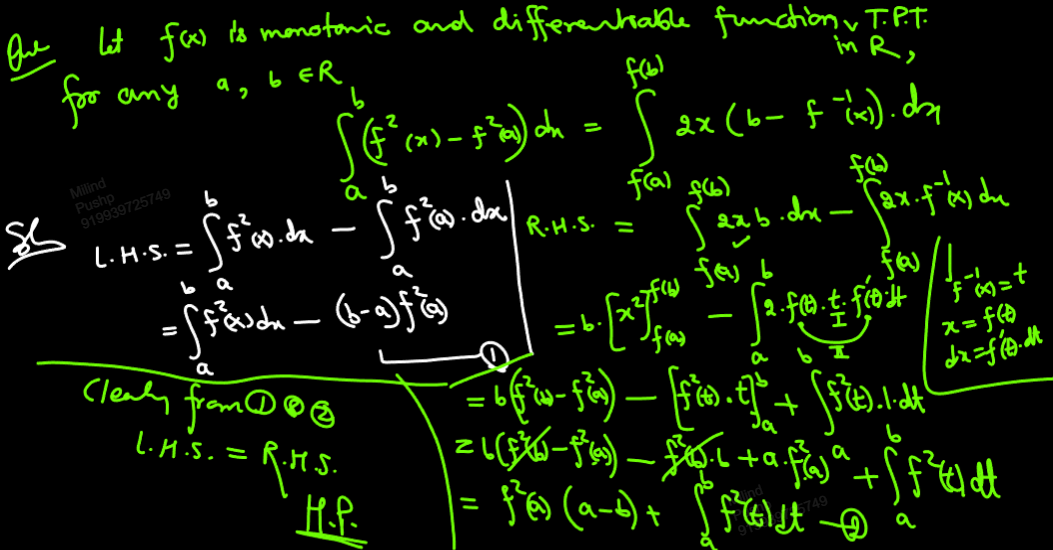 Que Let f(x) is monotonic and differentiable function in R, T.P.T.
for any a, b ∈ R
∫_a^b (f²(x) – f²(a)) dx = ∫_{f(a)}^{f(b)} 2x (b – f⁻¹(x)). dx
Milind
Pushp
919939725749
Sol L.H.S. = ∫_a^b f²(x).dx – ∫_a^b f²(a).dx
= ∫_a^b f²(x) dx – (b-a) f²(a) ①
R.H.S. = ∫_{f(a)}^{f(b)} 2x b.dx – ∫_{f(a)}^{f(b)} 2x. f⁻¹(x) dx
f⁻¹(x) = t
x = f(t)
dx = f'(t).dt
= b.[x²]_{f(a)}^{f(b)} – ∫_a^b 2.f(t). t. f'(t).dt
I
II
= b(f²(b) – f²(a)) – [f²(t).t]_a^b + ∫_a^b f²(t).1.dt
= b(f²(b) – f²(a)) – f²(b).b + a.f²(a) + ∫_a^b f²(t) dt
= f²(a) (a-b) + ∫_a^b f²(t) dt – ②
Clearly from ① & ②
L.H.S. = R.H.S.
H.P.